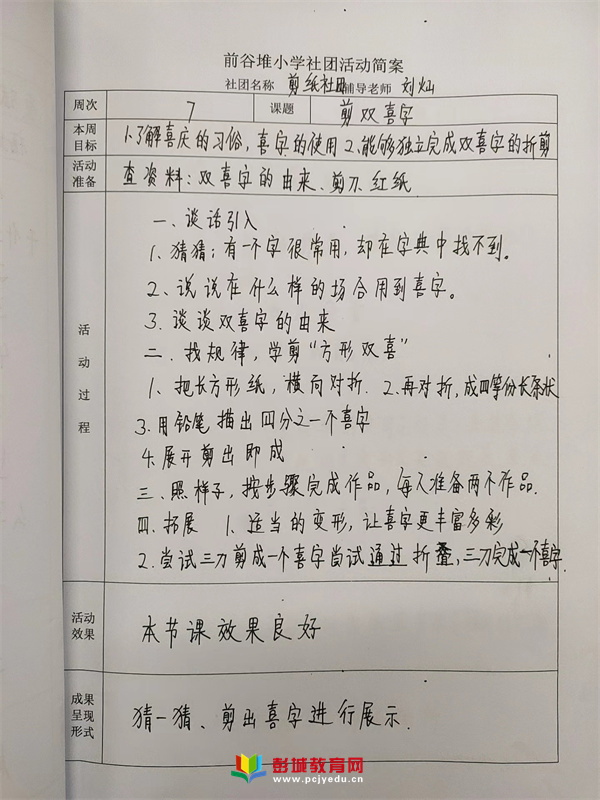 前谷堆小学社团活动简案
社团名称 剪纸社团 辅导老师 刘灿
周次 7 课题 剪双喜字
本周目标 1.了解喜庆的习俗，喜字的使用 2、能够独立完成双喜字的折剪
活动准备 查资料：双喜字的由来、剪刀、红纸
活动过程
一、谈话引入
1、猜猜：有一个字很常用，却在字典中找不到。
2、说说在什么样的场合用到喜字。
3.谈谈双喜字的由来
二、找规律，学剪“方形双喜”
1、把长方形纸，横向对折. 2、再对折，成四等份长条状
3.用铅笔描出四分之一个喜字
4.展开剪出即成
三、照样子，按步骤完成作品，每人准备两个作品.
四、拓展 1、适当的变形，让喜字更丰富多彩
2.尝试三刀剪成一个喜字尝试通过折叠，三刀完成一个喜字.
活动效果 本节课效果良好
成果呈现形式 猜一猜、剪出喜字进行展示.
彭城教育网
www.pcjyedu.cn